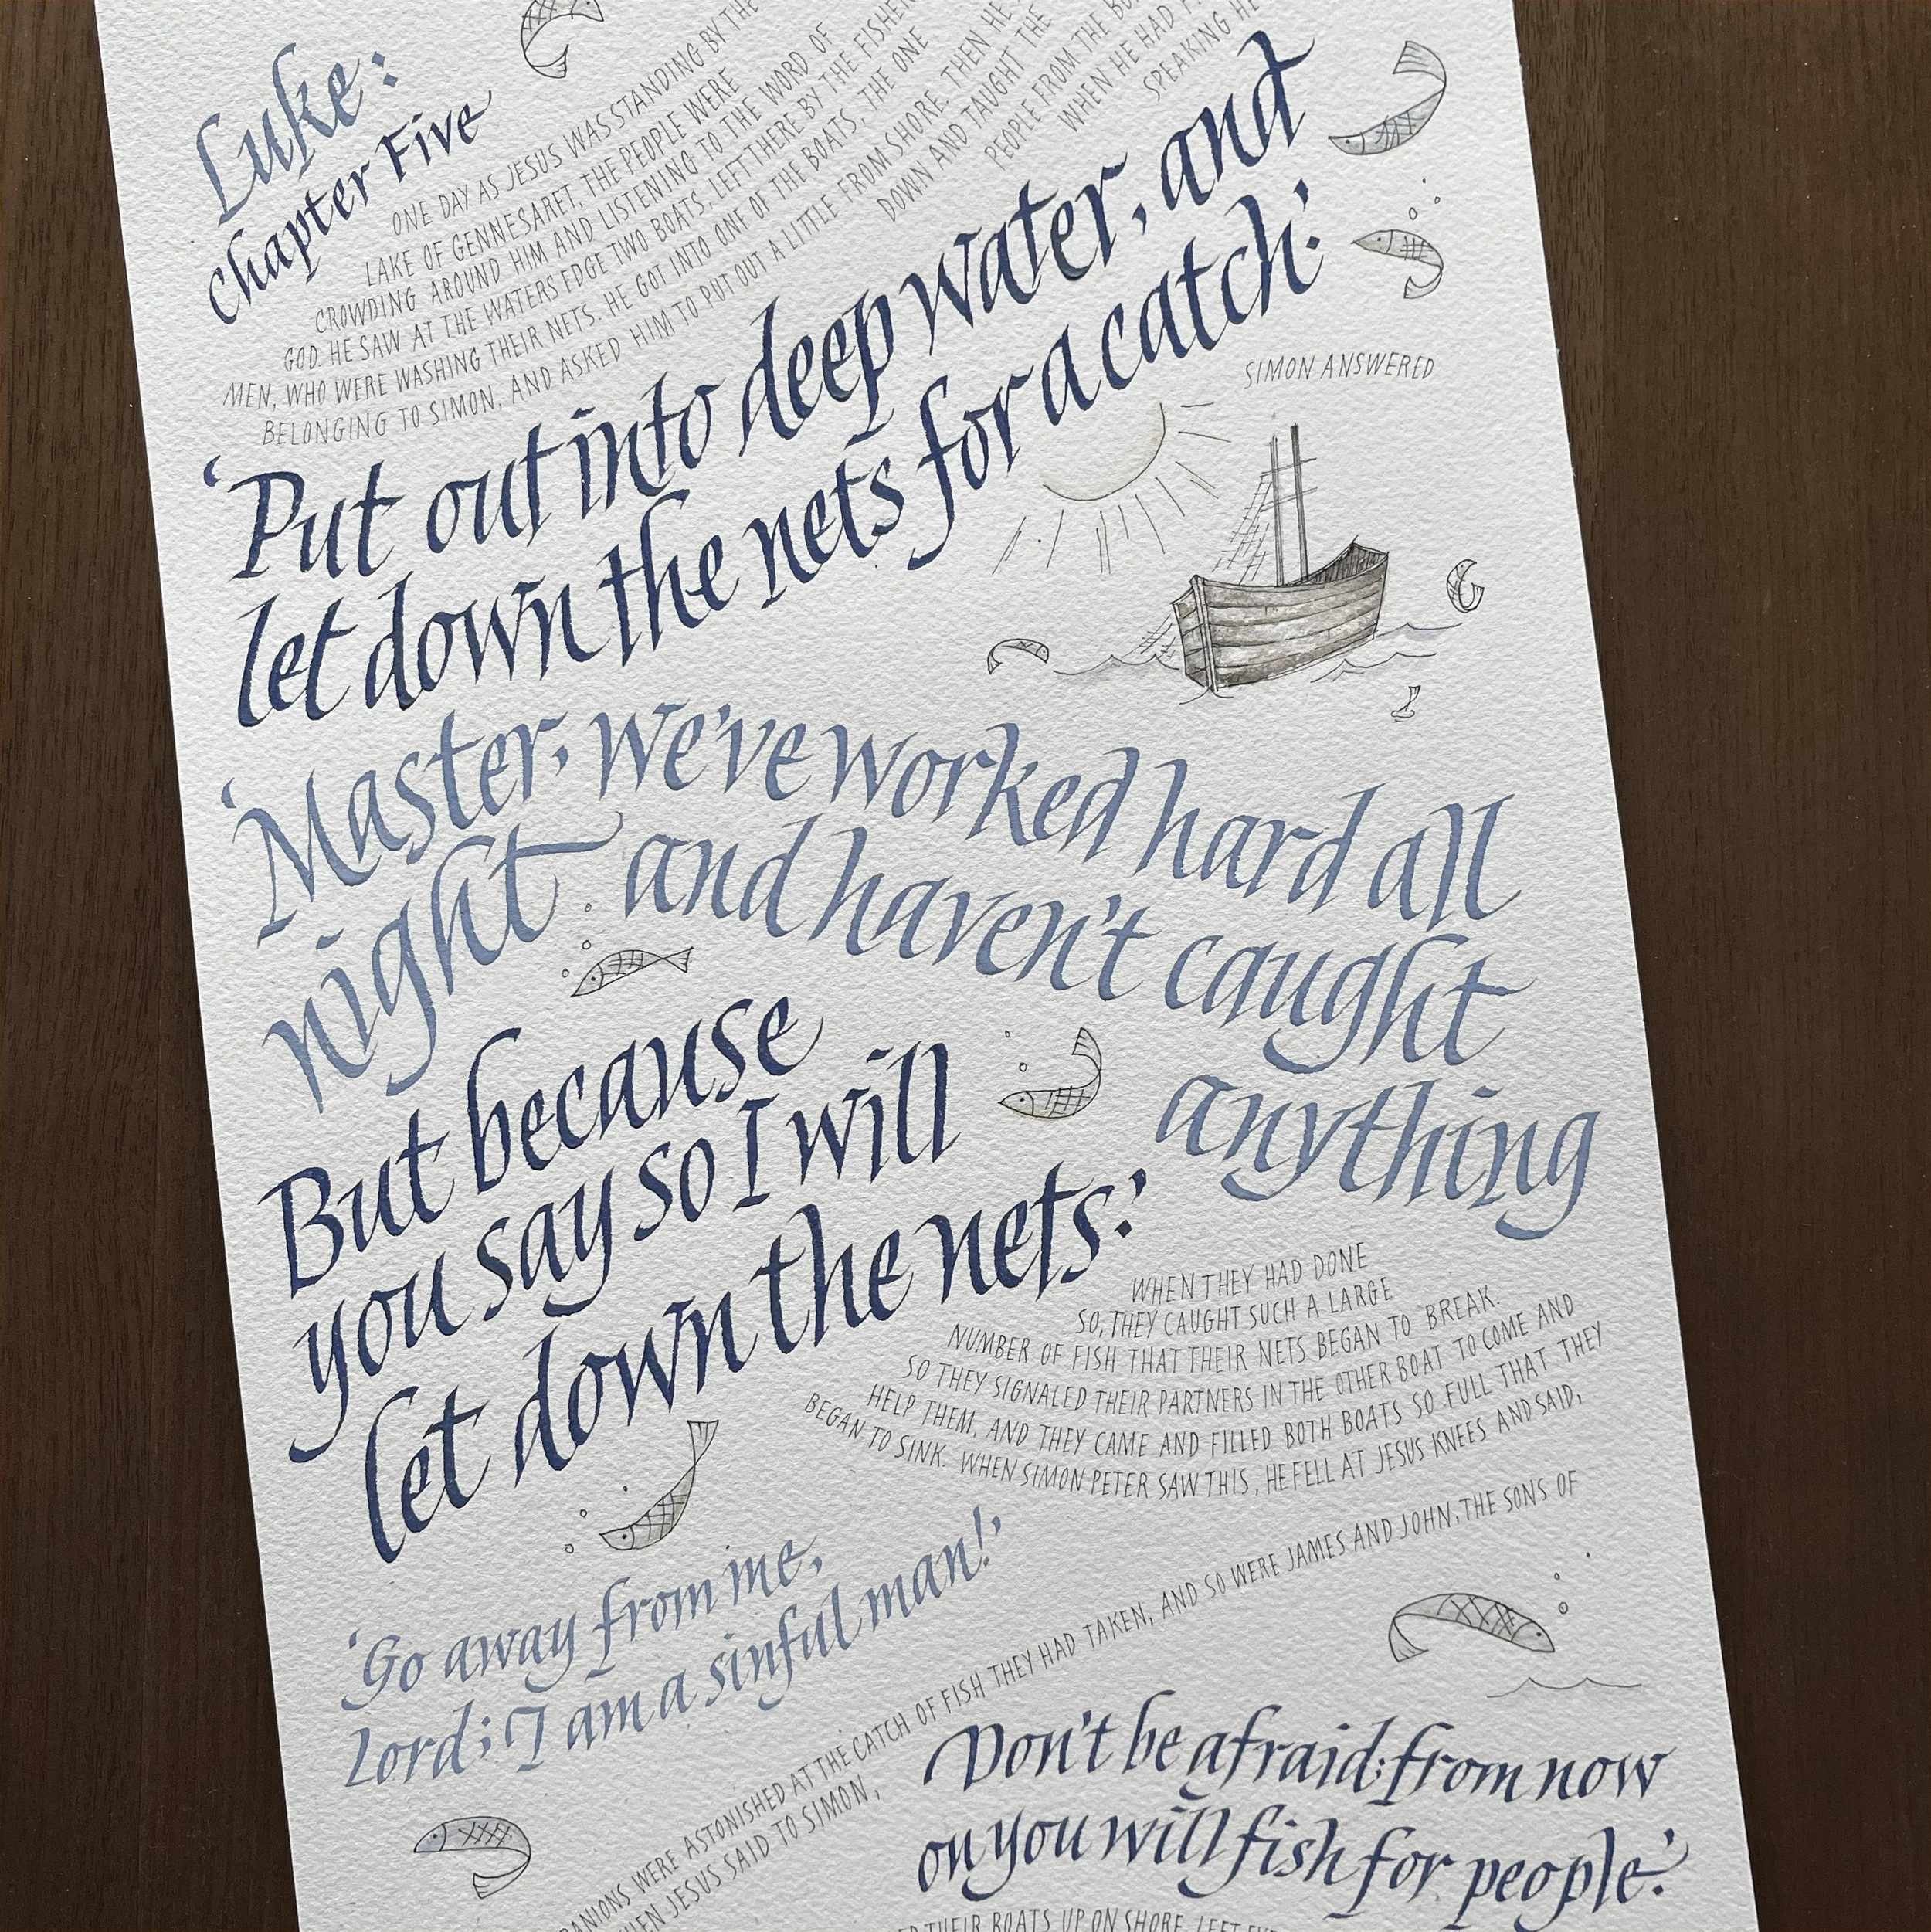 Luke:
Chapter Five
ONE DAY AS JESUS WAS STANDING BY THE
LAKE OF GENNESARET, THE PEOPLE WERE
CROWDING AROUND HIM AND LISTENING TO THE WORD OF
GOD. HE SAW AT THE WATERS EDGE TWO BOATS, LEFT THERE BY THE FISHER
MEN, WHO WERE WASHING THEIR NETS. HE GOT INTO ONE OF THE BOATS, THE ONE
BELONGING TO SIMON, AND ASKED HIM TO PUT OUT A LITTLE FROM SHORE. THEN HE
DOWN AND TAUGHT THE
PEOPLE FROM THE
WHEN HE HAD
SPEAKING HE
'Put out into deep water, and
let down the nets for a catch.'
SIMON ANSWERED
'Master, we've worked hard all
night and haven't caught
anything
But because
you say so I will
let down the nets.'
WHEN THEY HAD DONE
SO, THEY CAUGHT SUCH A LARGE
NUMBER OF FISH THAT THEIR NETS BEGAN TO BREAK.
SO THEY SIGNALED THEIR PARTNERS IN THE OTHER BOAT TO COME AND
HELP THEM, AND THEY CAME AND FILLED BOTH BOATS SO FULL THAT THEY
BEGAN TO SINK. WHEN SIMON PETER SAW THIS, HE FELL AT JESUS KNEES AND SAID,
'Go away from me,
Lord; I am a sinful man!'
PANIONS WERE ASTONISHED AT THE CATCH OF FISH THEY HAD TAKEN, AND SO WERE JAMES AND JOHN, THE SONS OF
WHEN JESUS SAID TO SIMON,
Don't be afraid; from now
on you will fish for people.'
THEIR BOATS UP ON SHORE, LEFT